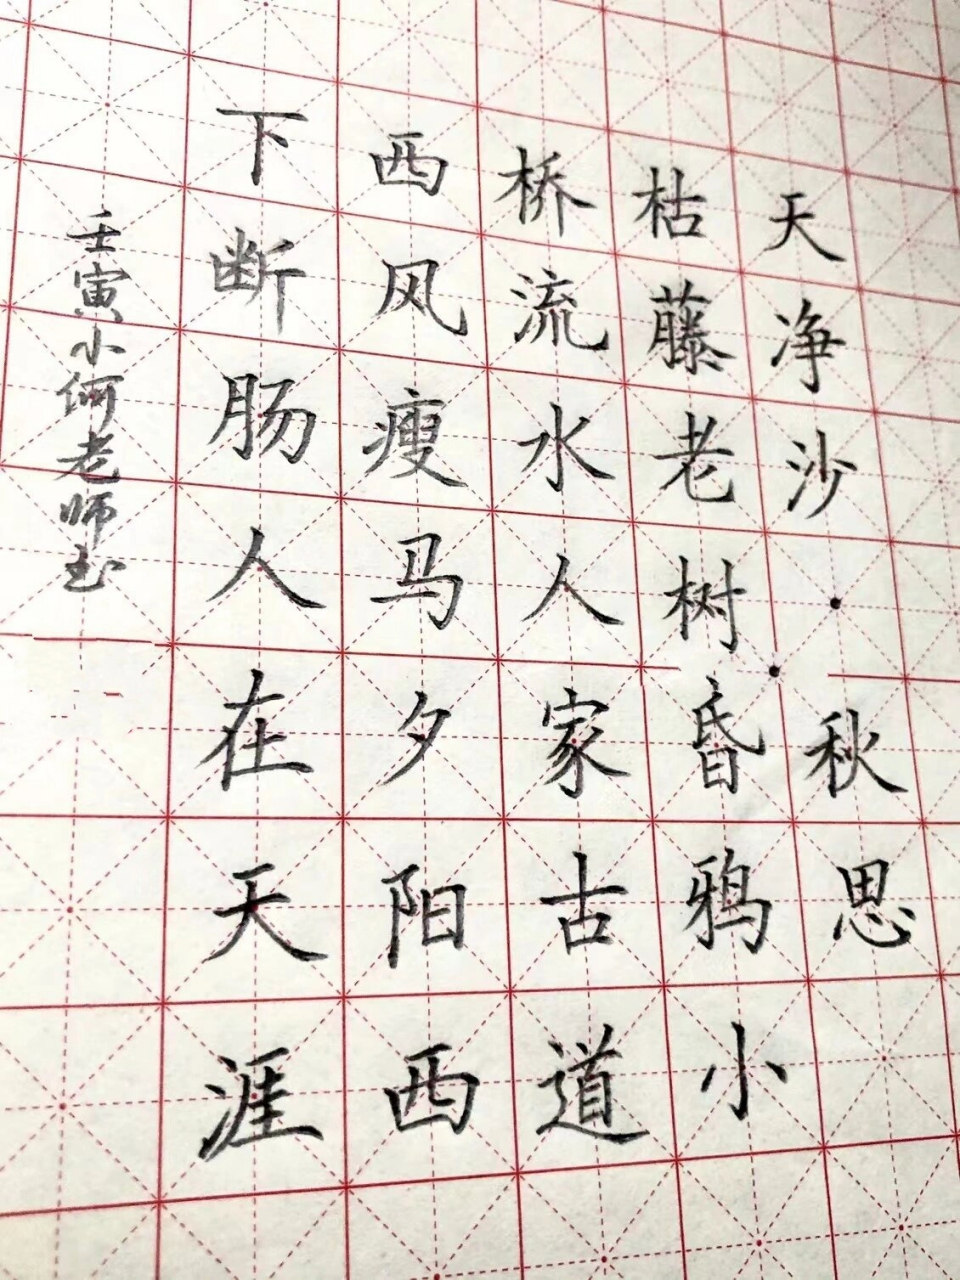 天净沙·秋思
枯藤老树昏鸦小
桥流水人家古道
西风瘦马夕阳西
下断肠人在天涯
壬寅小何老师书